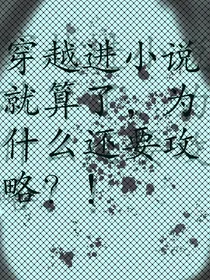 穿越进小说
就算了，为
什么还要攻
略？！